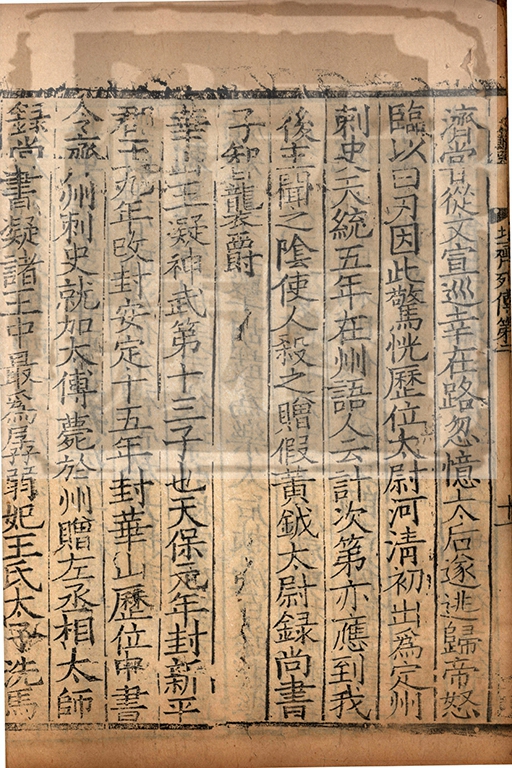 北齊列傳第二
十一
濟嘗從文宣巡幸在路忽憶太后遂逃歸帝怒
臨以白刃因此驚恍歷位太尉河清初出為定州
刺史天統五年在州語人云計次第亦應到我
後主聞之陰使人殺之贈假黃鉞太尉錄尚書
子智龍襲爵
華山王凝神武第十三子也天保元年封新平
郡王九年改封安定十五年封華山歷位中書
令齊州刺史就加太傅薨於州贈左丞相太師
錄尚書凝諸王中最為孱弱妃王氏太子洗馬